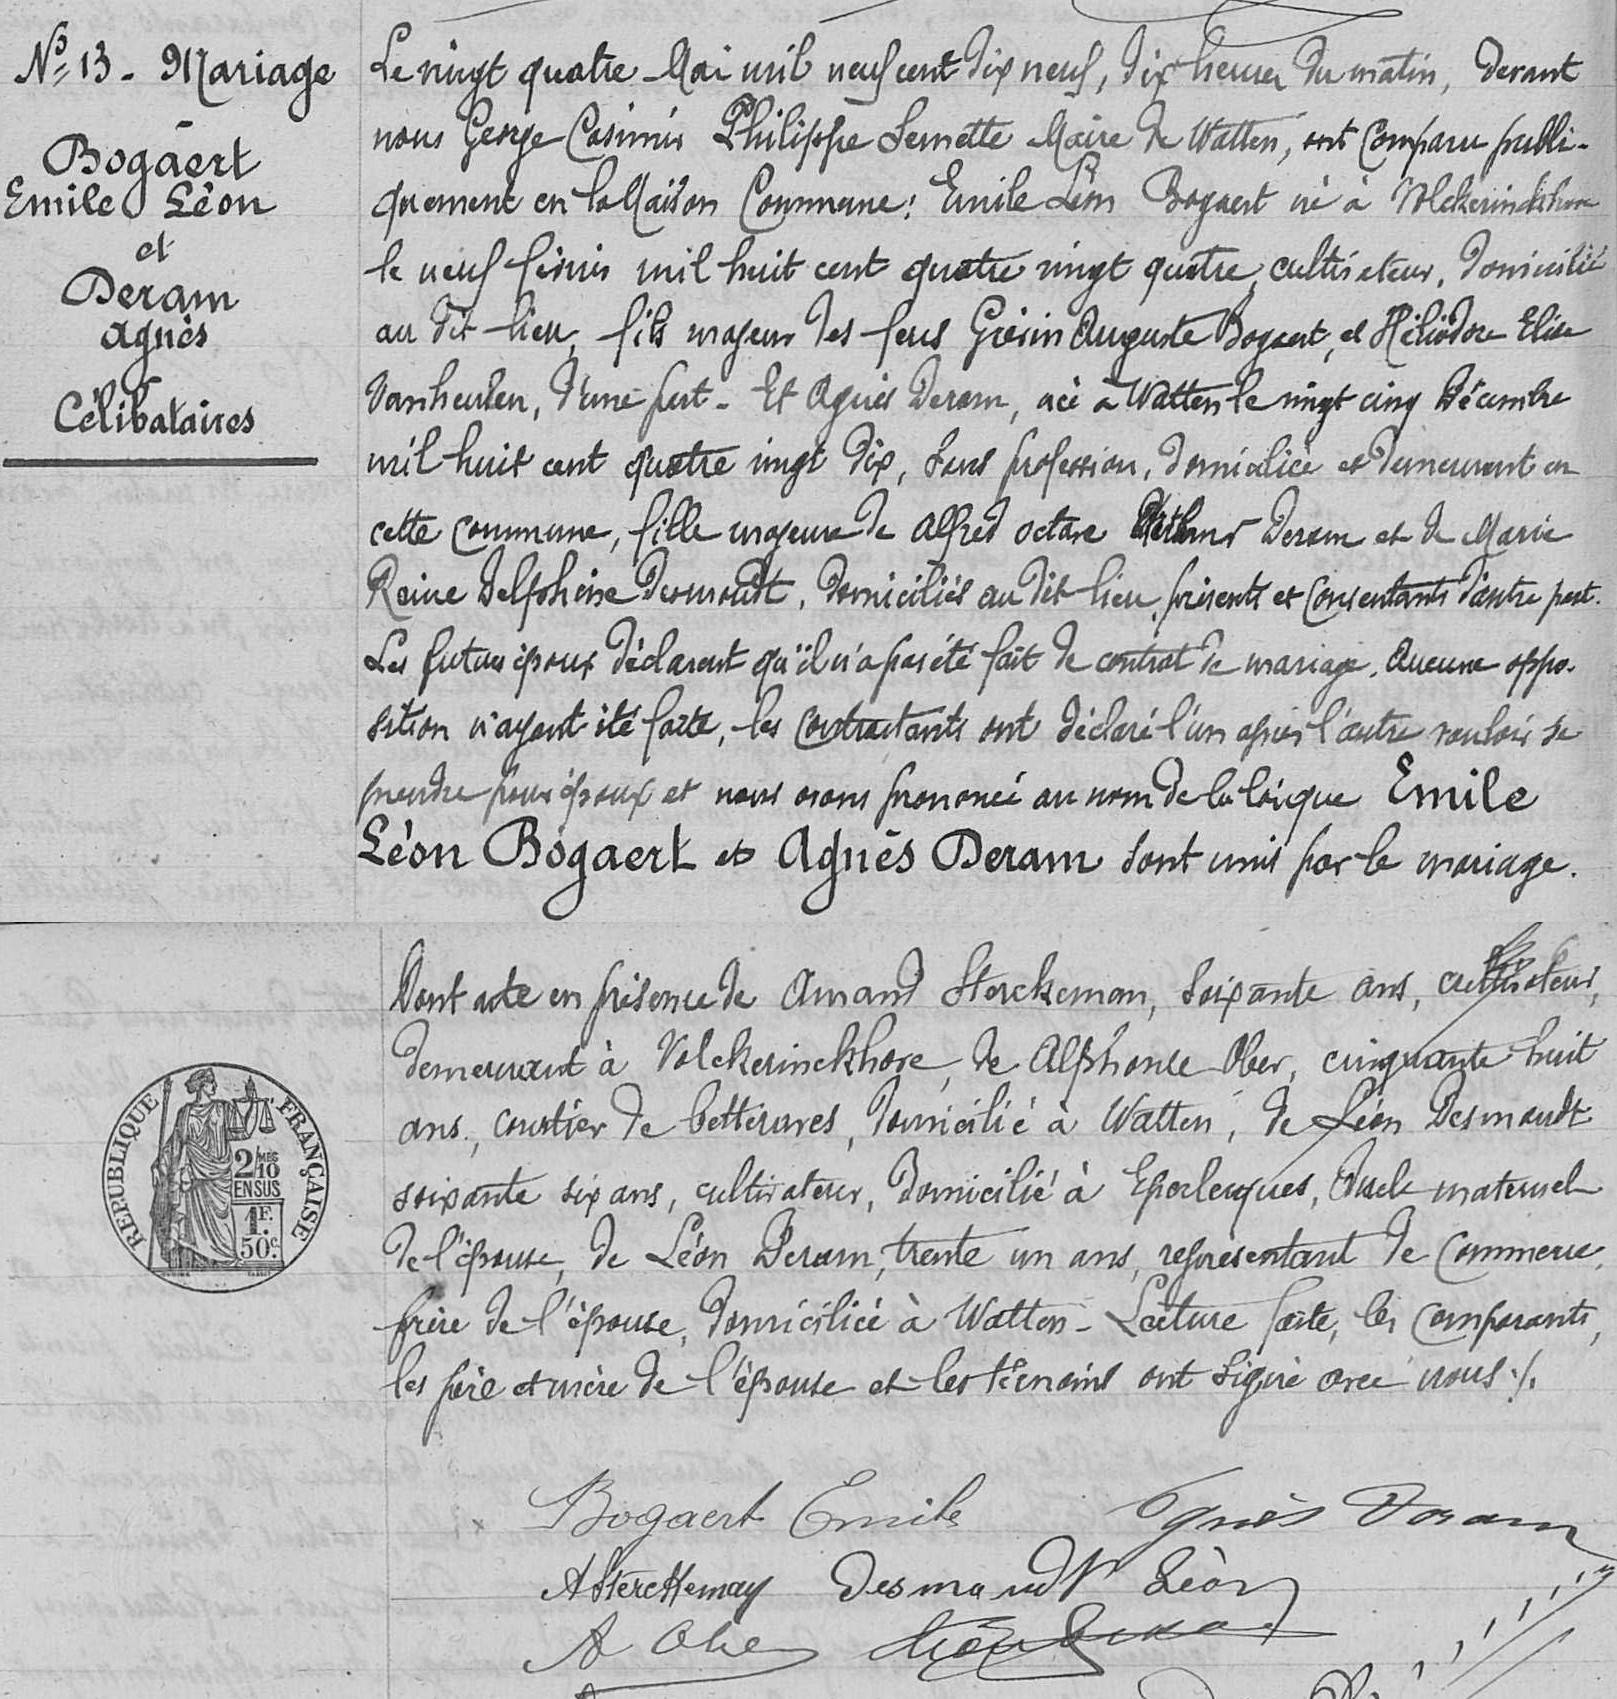 N° 13 - Mariage
Bogaert
Emile Léon
et
Deram
Agnès
Célibataires
Le vingt quatre Mai mil neuf cent dix neuf, dix heures du matin, devant
nous George Casimir Philippe Semette Maire de Watten, ont comparu publi-
quement en la Maison Commune: Emile Léon Bogaert né à Volckerinckhove
le neuf février mil huit cent quatre vingt quatre, cultivateur, domicilié
au dit lieu, fils majeur des feus Auguste Bogaert, et Héliodore Elise
Vanheulen, d'une part - Et Agnès Deram, née à Watten le vingt cinq Décembre
mil huit cent quatre vingt dix, sans profession, domiciliée et demeurant en
cette commune, fille majeure de Alfred Octave Deram et de Marie
Reine Delphine Desmoudt, domiciliés au dit lieu, présents et consentants d'autre part.
Les futurs époux déclarent qu'il n'a pas été fait de contrat de mariage. Aucune oppo-
sition n'ayant été faite, les contractants ont déclaré l'un après l'autre vouloir se
prendre pour époux et nous avons prononcé au nom de la loi que Emile
Léon Bogaert et Agnès Deram sont unis par le mariage.
Dont acte en présence de Amand Sterckeman, soixante ans, cultivateur,
demeurant à Volckerinckhove, de Alphonse Ober, cinquante huit
ans, courtier de betteraves, domicilié à Watten, de Léon Desmoudt
soixante six ans, cultivateur, domicilié à Eperlecques, Oncle maternel
de l'épouse, de Léon Deram, trente un ans, représentant de commerce,
frère de l'épouse, domicilié à Watten - Lecture faite, les comparants,
les père et mère de l'épouse et les témoins ont signé avec nous ./.
REPUBLIQUE FRANÇAISE
2/10 MES
EN SUS
1F.
50c.
Bogaert Emile Agnès Deram
A Sterckeman Desmoudt Léon
A Ober Léon Deram